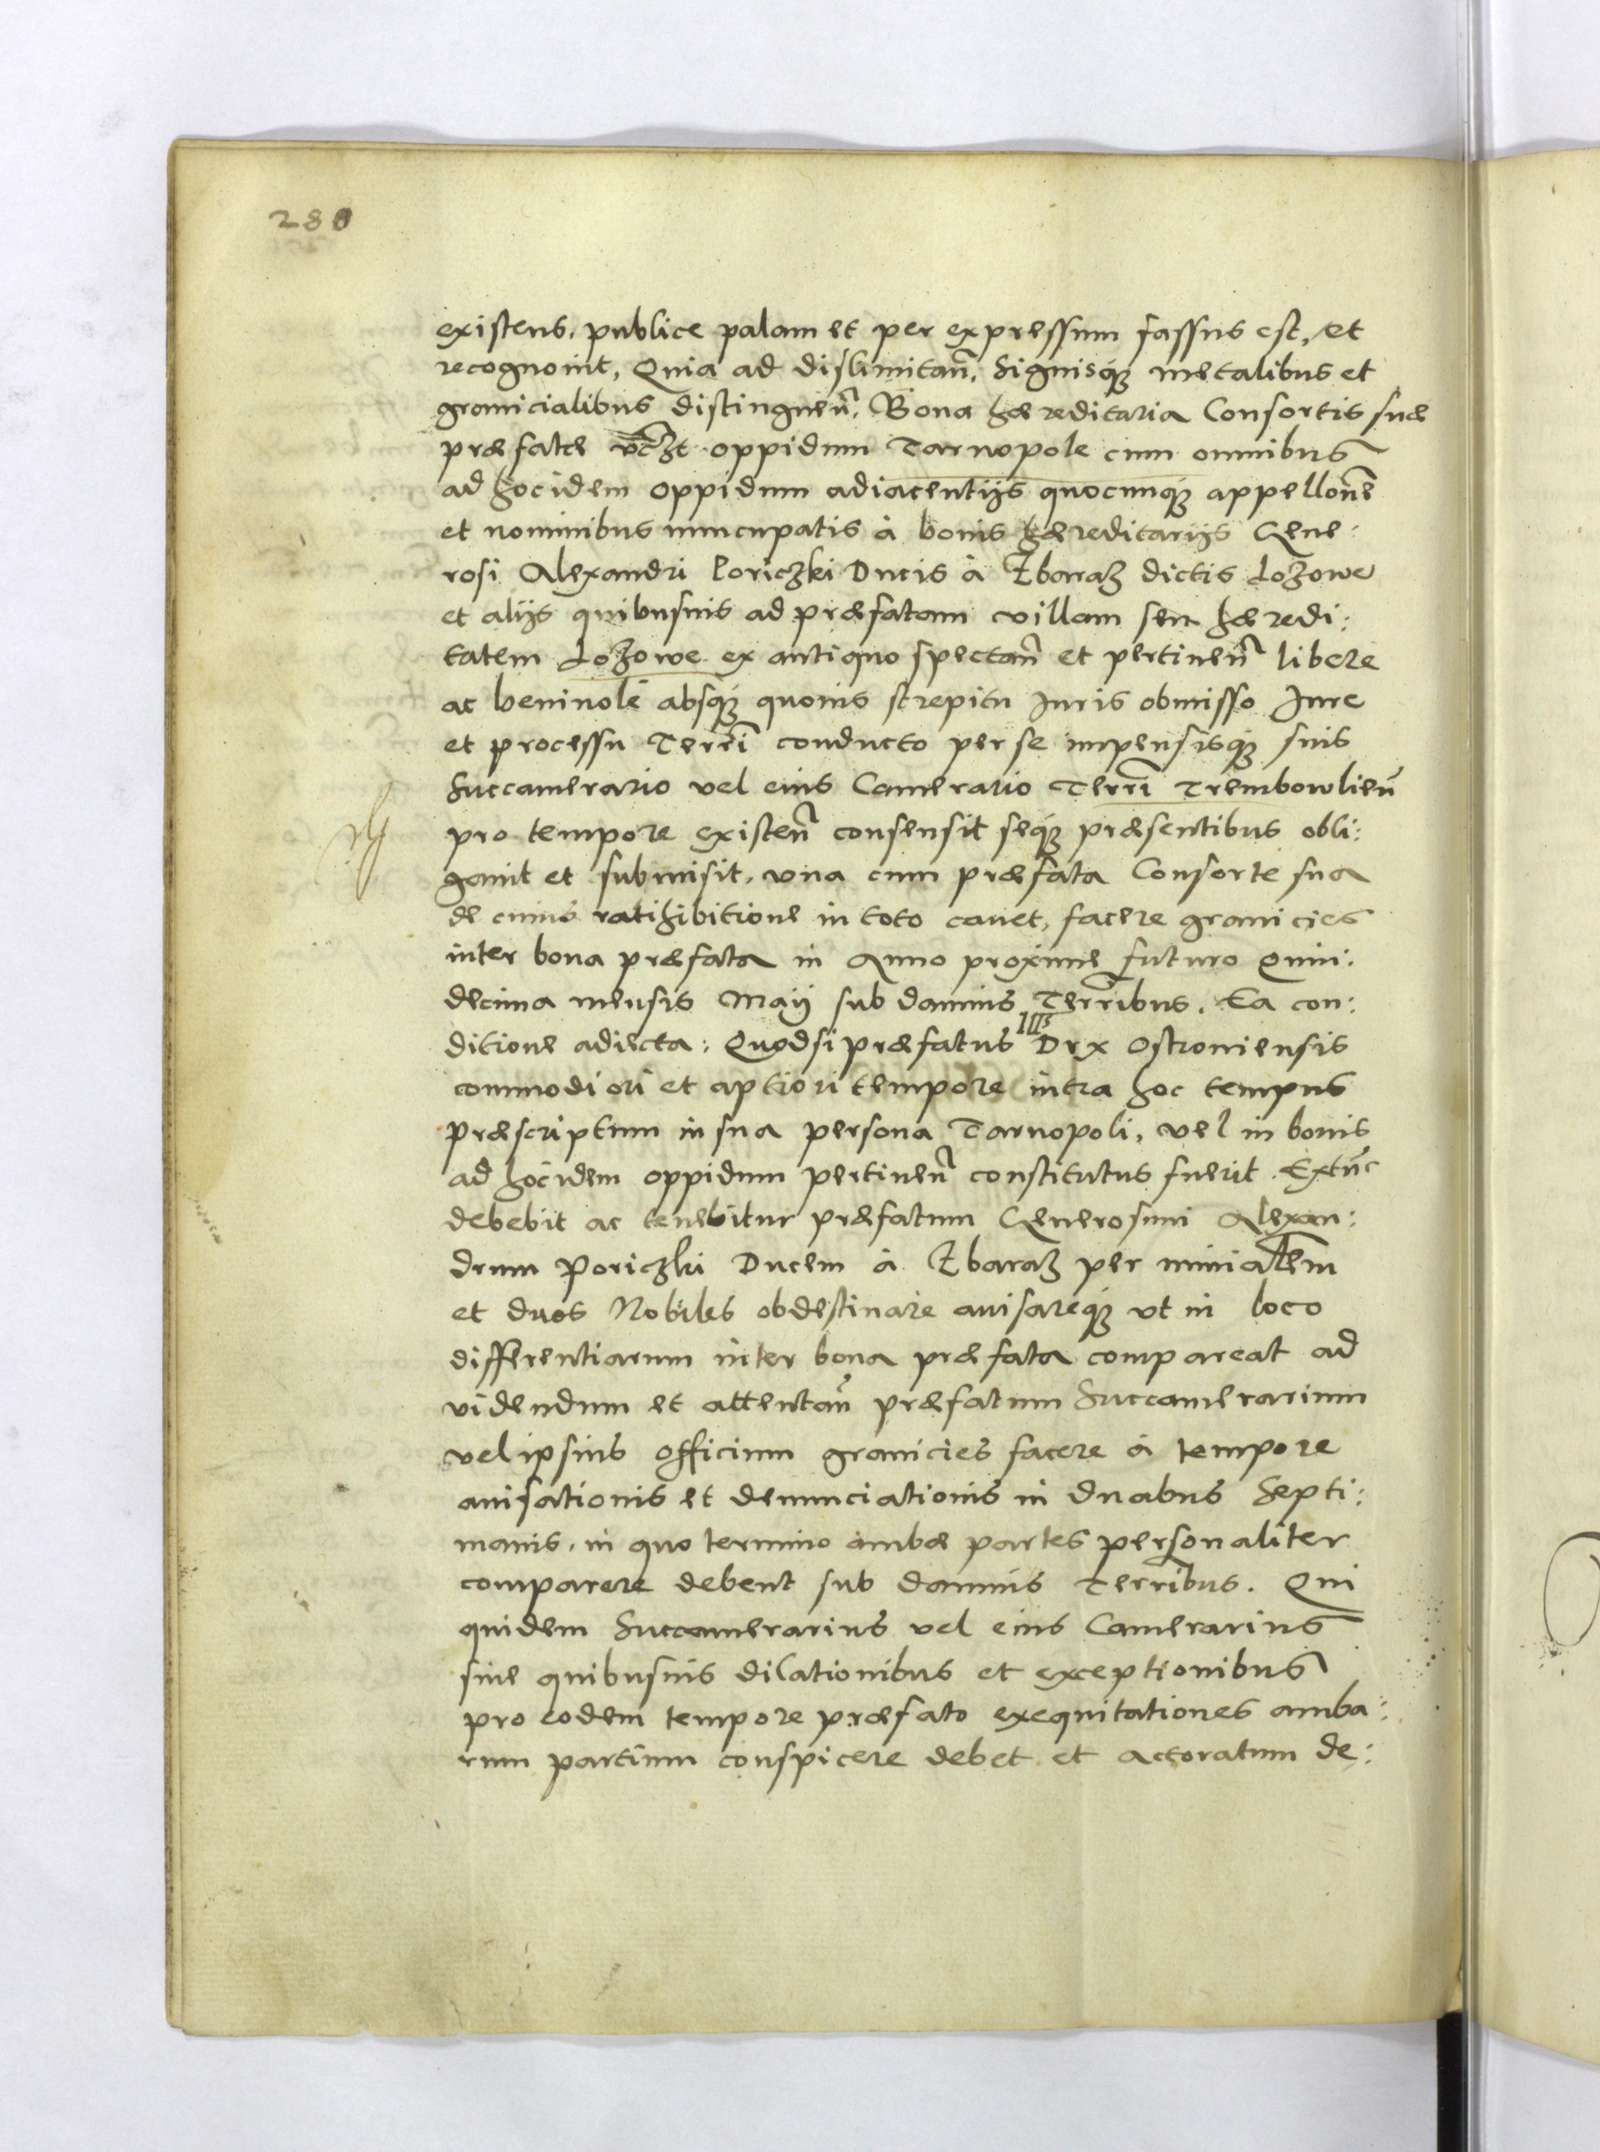 280
existens, publice palam et per expressum fassus est, et
recognouit, Quia ad dislimitan̄, signisq́ȝ metalibus et
granicialibus distinguen̄, Bona hæreditaria Consortis suæ
præfatæ vczt oppidum Tarnopole cum omnibus
ad hoc idem oppidum adiacentijs quocunq́ȝ appellōne
et nominibus nuncupatis à bonis hæreditarijs Gene:
rosi Alexandri Poriczki Ducis à Zbaraz dictis Lozowe
et alijs quibusuis ad præfatam villam seu hæredi:
tatem Lozowe ex antiquo spectan̄ et pertinen̄ libere
ac beniuole absq́ȝ quouis strepitu Juris obmisso Jure
et processu Terr̄i conducto per se impensisq́ȝ suis
Succamerario vel eius Camerario Terr̄i Trembowlien̄
pro tempore existen̄ consensit seq́ȝ præsentibus obli:
gauit et submisit, vna cum præfata Consorte sua
de cuius ratihibitione in toto cauet, facere granicies
inter bona præfata in Anno proxime futuro Quin:
decima mensis Maij sub damnis Terr̄ibus. Ea con:
ditione adiecta: Quodsi præfatus Ill̄s Dux Ostroniensis
commodiori et aptiori tempore intra hoc tempus
præscriptum in sua persona Tarnopoli, vel in bonis
ad hoc idem oppidum pertinen̄ constitutus fuerit. Extūc
debebit ac tenebitur præfatum Generosum Alexan:
drum Poriczki Ducem à Zbaraz per minialem
et duos Nobiles obdestinare auisareq́ȝ vt in loco
differentiarum inter bona præfata compareat ad
videndum et attentan̄ præfatum Succamerarium
vel ipsius officium granicies facere à tempore
auisationis et denunciationis in duabus Septi:
manis, in quo termino ambæ partes personaliter
comparere debent sub damnis Terr̄ibus. Qui
quidem Succamerarius vel eius Camerarius
siue quibusuis dilationibus et exceptionibus
pro eodem tempore præfato exequitationes amba:
rum partium conspicere debet et actoratum de: